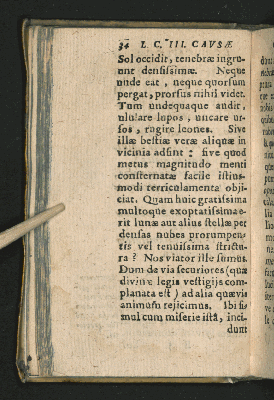 34 L. C. III. CAVSÆ
Sol occidit, tenebræ ingru-
unt densissimæ. Neque
unde eat, neque quorsum
pergat, prorsus nihil videt.
Tum undequaque audit,
ululare lupos, uncare ur-
sos, rugire leones. Sive
illæ bestiæ veræ aliquæ in
vicinia adsint: sive quod
metus magnitudo menti
consternatæ facile istius-
modi terriculamenta obji-
ciat. Quam huic gratissima
multoque exoptatissima e-
rit lunæ aut alius stellæ per
densas nubes prorumpen-
tis vel tenuissima strictu-
ra? Nos viator ille sumus.
Dum de via securiores (quæ
divinæ legis vestigijs com-
planata est) ad alia quævis
animum rejicimus. Ibi si-
mul cum miserie istâ, inci-
dunt